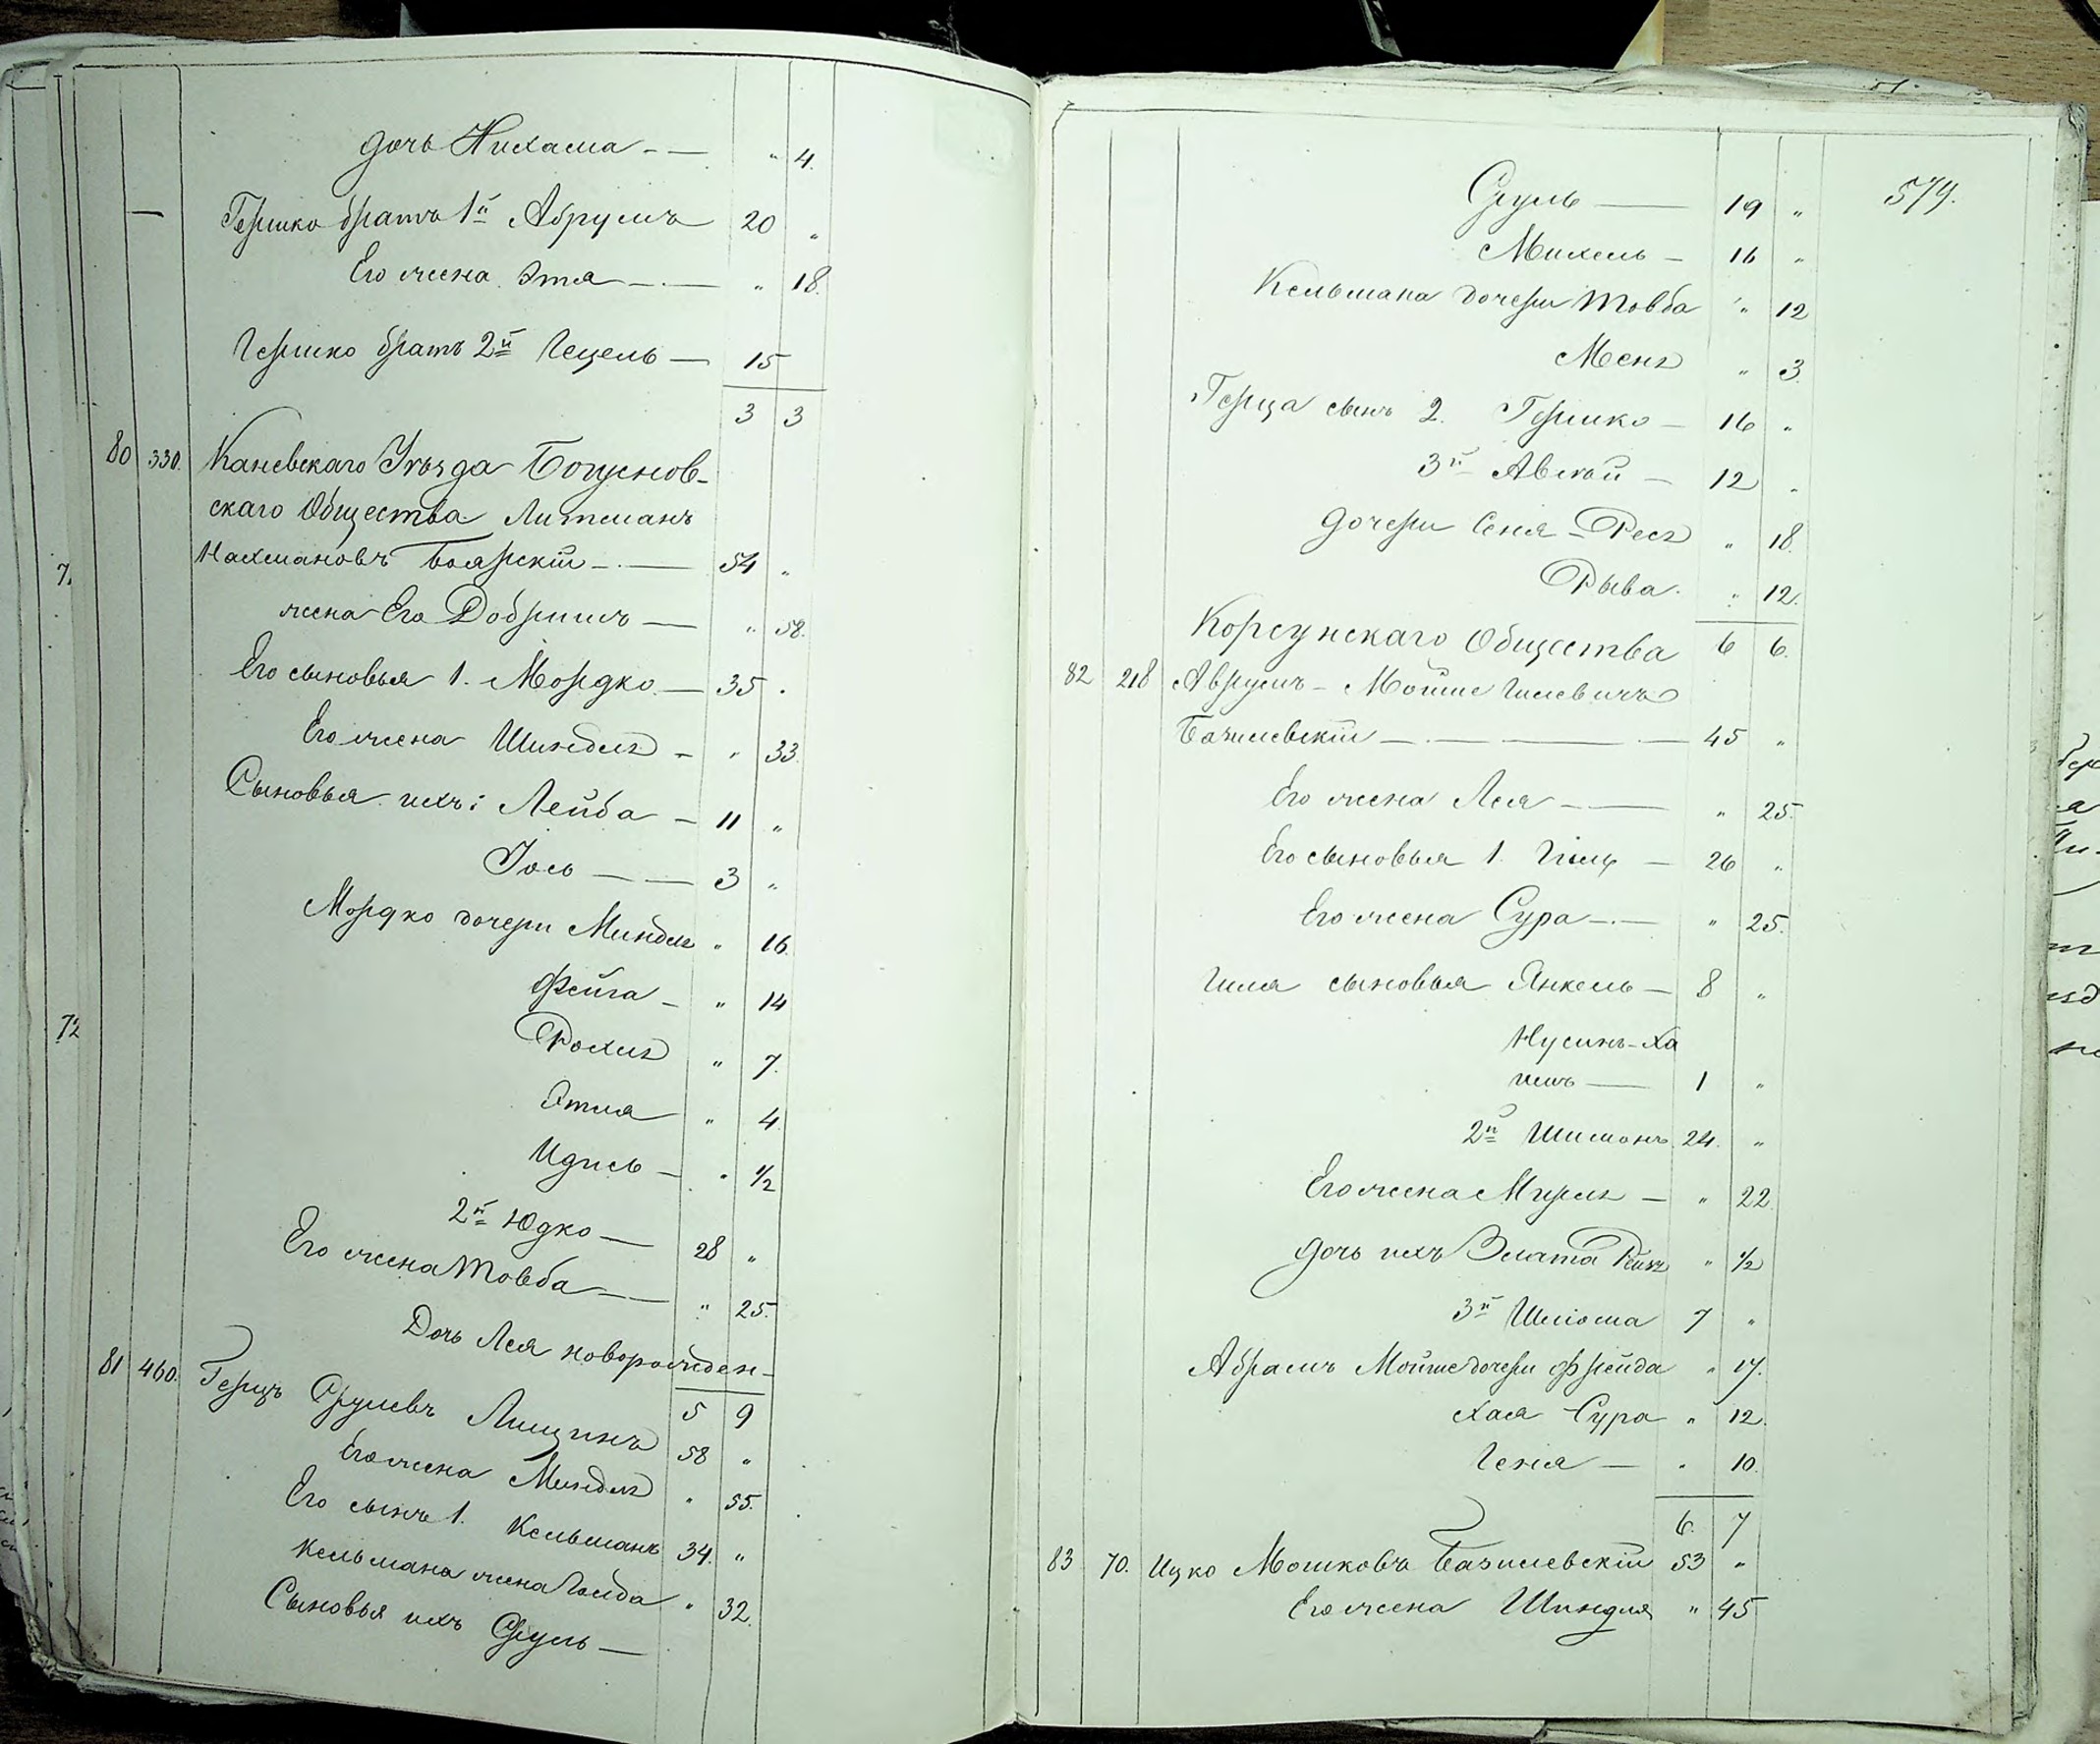 дочь Нихама - — " 4.
— Гершко братъ 1й Абрумъ 20 "
Его жена Этя — . — " 18.
Гершко братъ 2й Гецель — 15
3 3
80 330. Каневскаго Уѣзда Богуслов-
скаго Общества Литманъ
Нахмановъ Боярскій - . — 54 "
жена Его Добришъ — " 58.
Его сыновья 1. Мордко — 35 "
Его жена Шиндля - " 33.
Сыновья ихъ: Лейба - 11 "
Іось — — 3 "
Мордко дочери Миндля " 16.
Фейга - " 14
Рохля " 7.
Этля " 4
Идись - " 1/2
2й Юдко — 28 "
Его жена Товба — " 25.
Дочь Лея новорожден-
5 9
81 460. Герцъ Срулевъ Лищинъ 58 "
Его жена Миндля " 55.
Его сынъ 1. Кельманъ 34. "
Кельмана жена Голда " 32.
Сыновья ихъ Сруль —
7.
72
579.
Сруль — 19 "
Михель - 16 "
Кельмана дочери Товба " 12
Меня " 3.
Герца сынъ 2. Гершко - 16 "
3й Авсѣй - 12 "
дочери Сеня-Рея " 18.
Рыва. " 12.
6 6.
Корсунскаго Общества
82 218 Аврумъ-Мойше Гилевичъ
Базилевскій — . — . — 45 "
Его жена Лея - — " 25.
Его сыновья 1. Гиль — 26 "
Его жена Сура — . — " 25.
Гиля сыновья Янкель — 8 "
Нусинъ-Ха
имъ — 1 "
2й Шимонъ 24. "
Его жена Мирля - " 22
дочь ихъ Злата Рейза " 1/2
3й Шліома 7 "
Абрамъ Мойше дочери Фрейда " 17.
Хая Сура " 12.
Геня — " 10.
6. 7
83 70. Ицко Мошковъ Базилевскій 53 "
Его жена Шиндля " 45